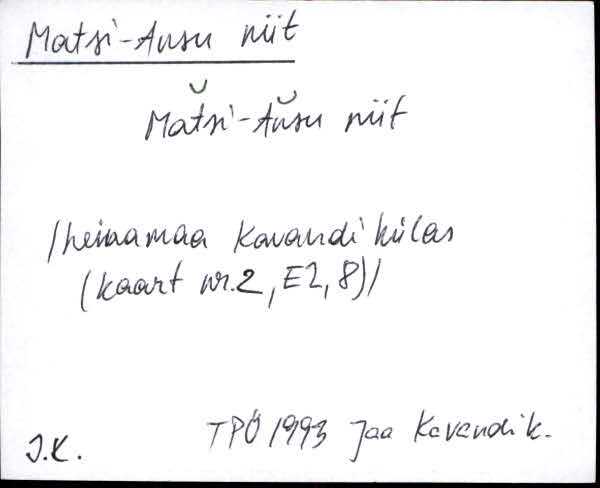 Matsi-Ansu niit
Mătsi-Ănsu niit
/heinamaa Kavandi külas
(kaart nr. 2, E2, 8)/
J.K. TPÜ 1993 Jaa Kavandi k.